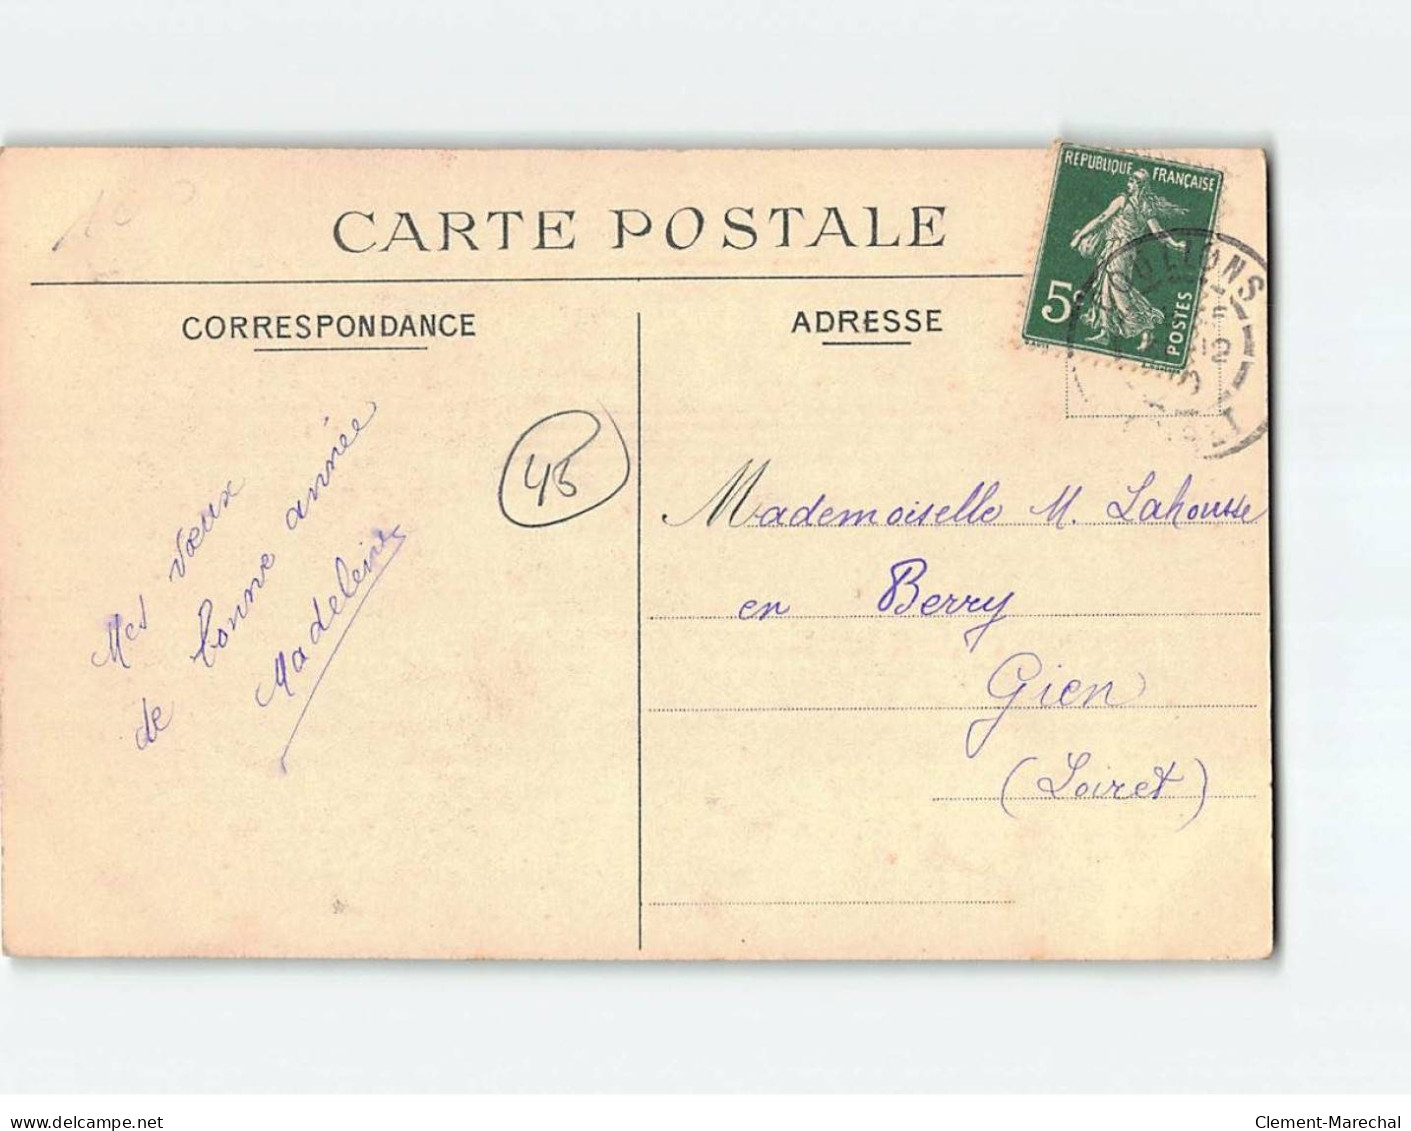 CARTE POSTALE
CORRESPONDANCE
ADRESSE
RÉPUBLIQUE FRANÇAISE
5c
POSTES
45
Mes vœux
de bonne année
Madeleine
Mademoiselle M. Lahousse
en Berry
Gien
(Loiret)
www.delcampe.net
Clement-Marechal